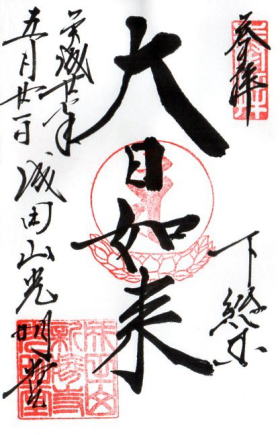 奉拝
下総国
大日如来
成田山光明堂
平成廿年
五月廿一日